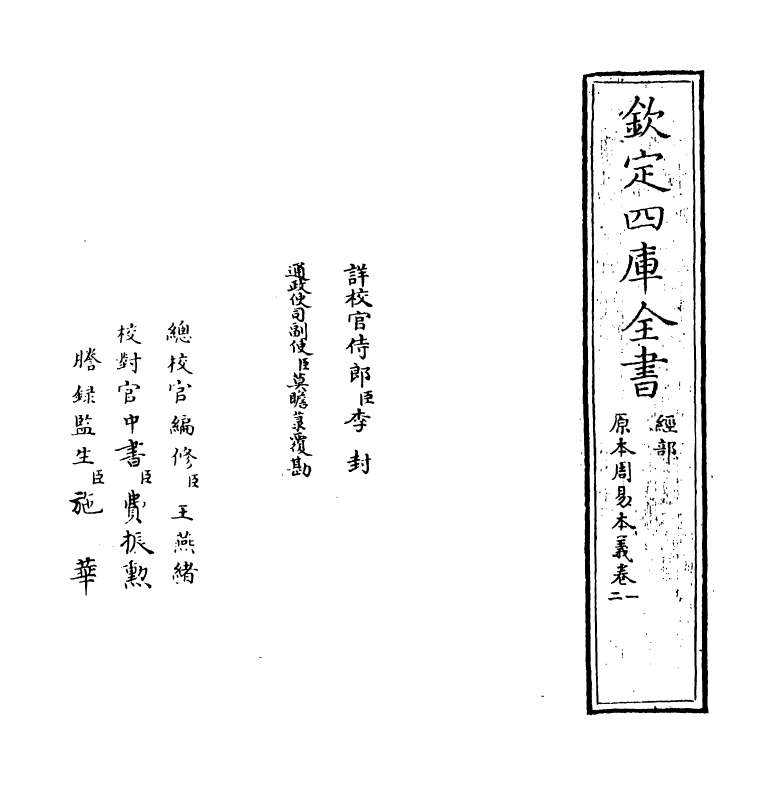 欽定四庫全書
經部
原本周易本義卷一二
詳校官侍郎臣李封
通政使司副使臣莫瞻菉覆勘
總校官編修臣王燕緒
校對官中書臣費振勲
謄録監生臣施華